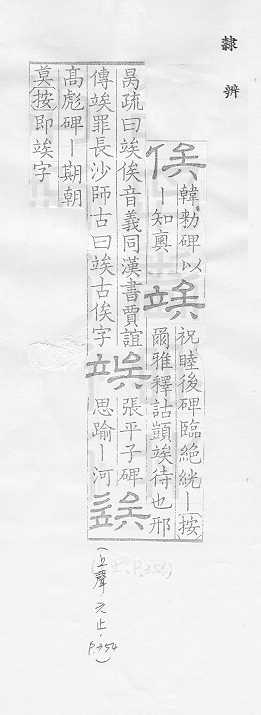 隸辨
俟 韓勑碑以
丨知奧
竢 祝睦後碑臨絕絖丨按
爾雅釋詁䇓竢待也邢
昺疏曰竢俟音義同漢書賈誼
傳竢罪長沙師古曰竢古俟字
竢 張平子碑
思踰丨河
竢
高彪碑丨期朝
莫按即竢字
(上聲 六止,P.254)